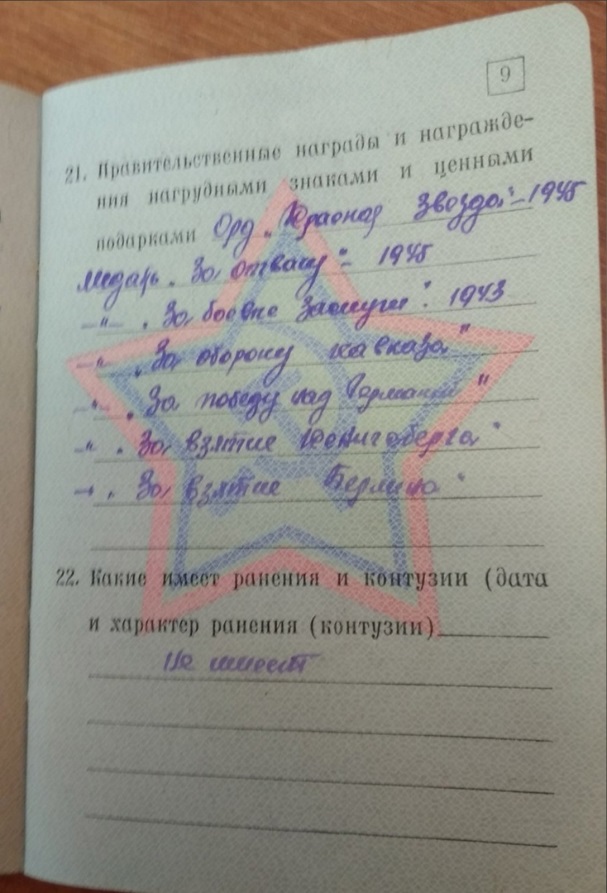 9
21. Правительственные награды и награжде-
ния нагрудными знаками и ценными
подарками Орд „Красная Звезда" - 1945
Медаль „За отвагу" - 1945
—"— „За боевые заслуги". 1943
—"— „За оборону Кавказа"
—"— „За победу над Германией"
—"— „За взятие Кенигсберга"
—"— „За взятие Берлина"
22. Какие имеет ранения и контузии (дата
и характер ранения (контузии)
Не имеет